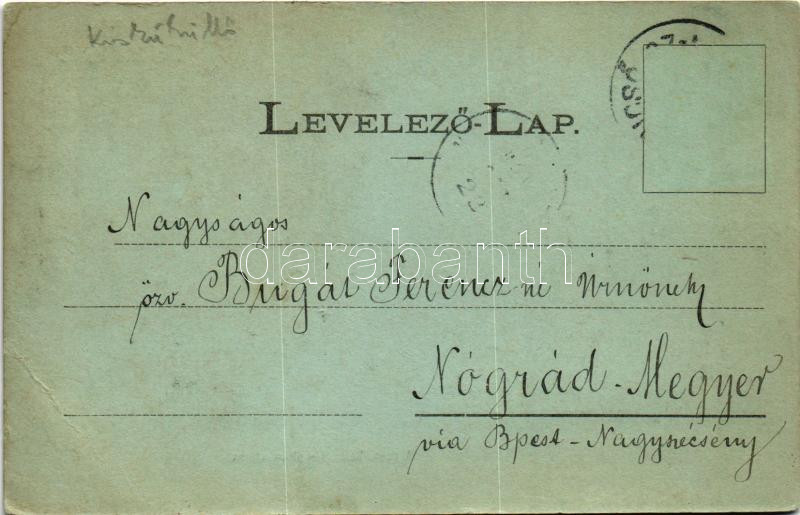 Kisküküllő
LEVELEZŐ-LAP.
Nagyságos
özv. Bugát Ferencz né Úrnőnek
Nógrád-Megyer
via Bpest-Nagyszécsény
darabanth